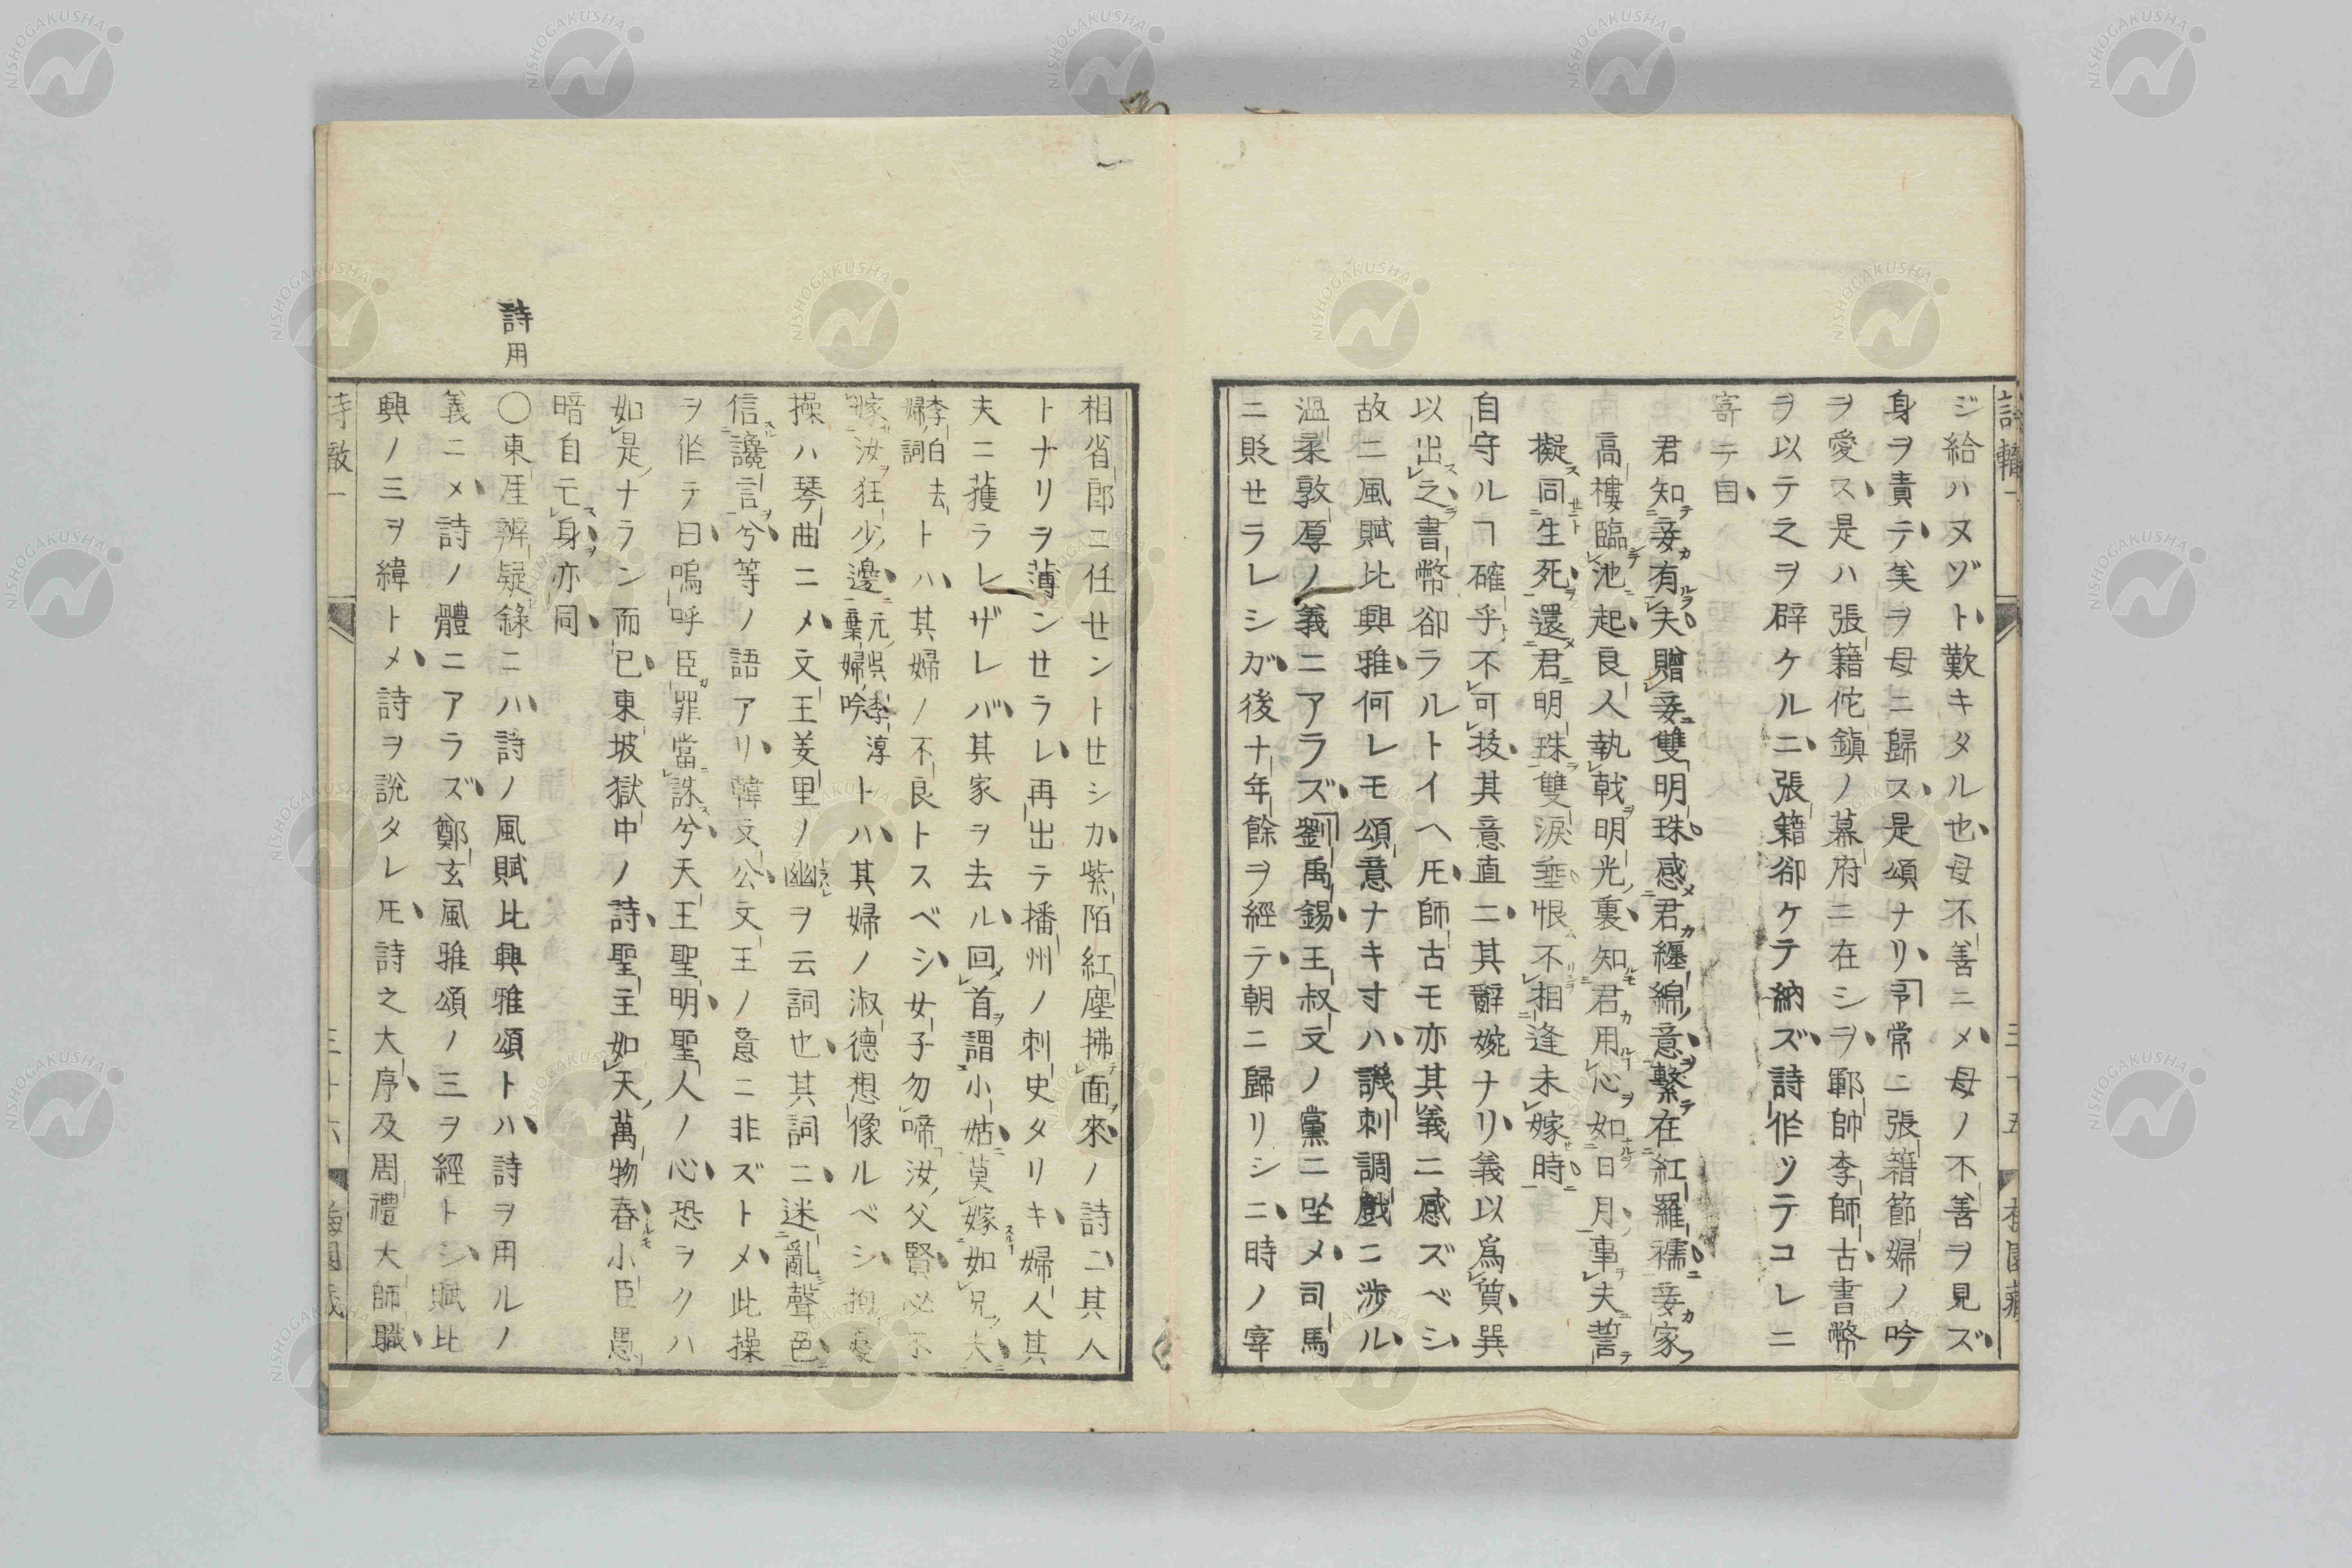 ジ給ハヌゾト歎キタル也母不善ニメ母ノ不善ヲ見ズ
身ヲ責テ美ヲ母ニ歸ス是頌ナリ予常ニ張籍節婦ノ吟
ヲ愛ス是ハ張籍佗鎭ノ幕府ニ在シヲ鄆帥李師古書幣
ヲ以テ之ヲ辟ケルニ張籍卻ケテ納ズ詩作ツテコレニ
寄テ曰
君知妾有夫贈妾雙明珠感君纏綿意繫在紅羅襦妾家
高樓臨池起良人執戟明光裏知君用心如日月事夫誓
擬同生死還君明珠雙淚垂恨不相逢未嫁時
自守ルヿ確乎不可拔其意直ニ其辭婉ナリ義以爲質巽
以出之書幣卻ラルトイヘ𪜈師古モ亦其義ニ感ズベシ
故ニ風賦比興雅何レモ頌意ナキ寸ハ譏刺調戲ニ渉ル
溫柔敦厚ノ義ニアラズ劉禹錫王叔文ノ黨ニ坐メ司馬
ニ貶セラレシガ後十年餘ヲ經テ朝ニ歸リシニ時ノ宰
相省郎ニ任セントセシカ紫陌紅塵拂面來ノ詩ニ其人
トナリヲ薄ンセラレ再出テ播州ノ刺史タリキ婦人其
夫ニ獲ラレザレバ其家ヲ去ル回首謂小姑莫嫁如兄夫
李白去婦詞トハ其婦ノ不良トスベシ女子勿啼汝父賢必不
嫁汝狂少邊元吳李淳棄婦吟トハ其婦ノ淑德想像ルベシ
操ハ琴曲ニメ文王羑里ノ幽ヲ云詞也其詞ニ迷亂聲色
信讒言兮等ノ語アリ韓文公文王ノ意ニ非ズトメ此操
ヲ作テ曰嗚呼臣罪當誅兮天王聖明聖人ノ心恐ヲクハ
如是ナラン而已東坡獄中ノ詩聖主如天萬物春小臣愚
暗自亡身亦同
詩用
〇東厓辨疑錄ニハ詩ノ風賦比興雅頌トハ詩ヲ用ルノ
義ニメ詩ノ體ニアラズ鄭玄風雅頌ノ三ヲ經トシ賦比
興ノ三ヲ緯トメ詩ヲ說タレ𪜈詩之大序及周禮大師職